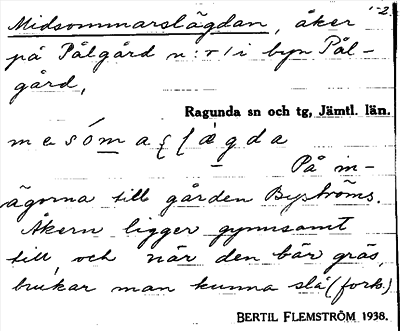 Midsommarslägdan, åker 1-2.
på Pålgård n:r 1 i byn Pål-
gård,
Ragunda sn och tg, Jämtl. län.
På in-
ägorna till gården Byströms.
Åkern ligger gynnsamt
till, och när den bär gräs,
brukar man kunna slå (forts.)
BERTIL FLEMSTRÖM 1938.